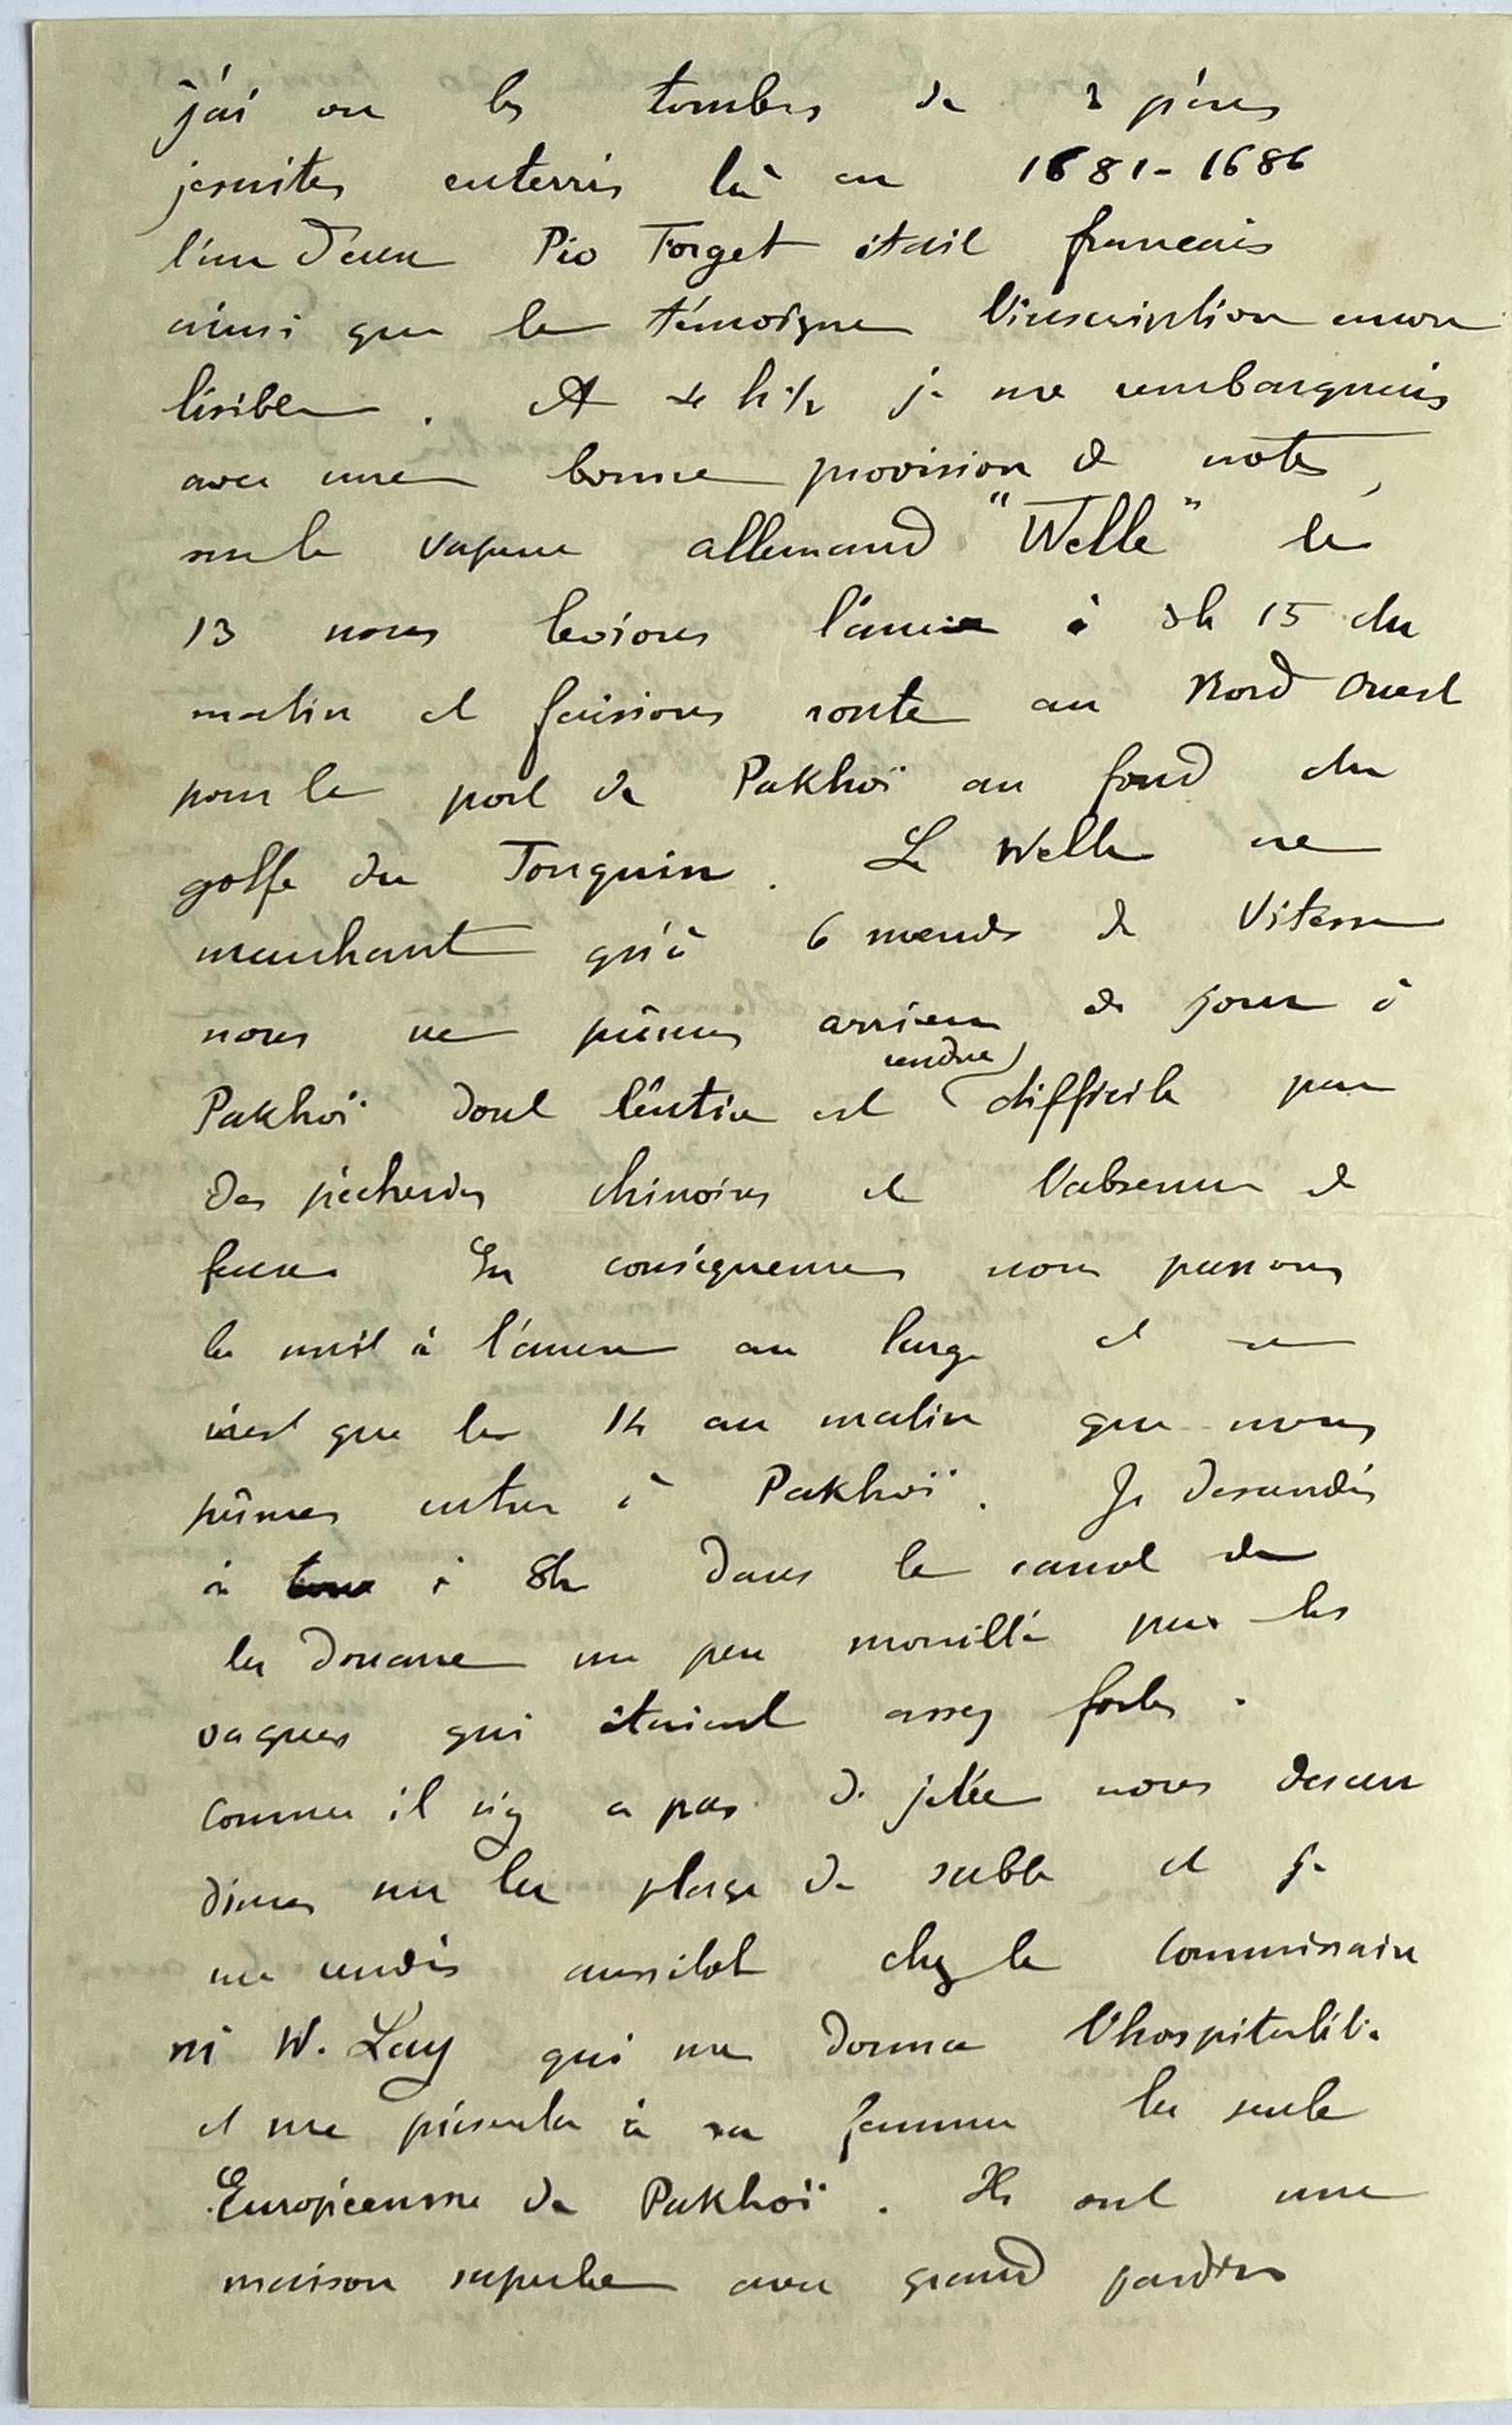 j'ai vu les tombes de 3 pères
jesuites enterrés là en 1681-1686
l'un d'eux Pio Forget était francais
ainsi que le témoigne l'inscription encore
lisible. A 4 h ½ je me rembarquais
avec une bonne provision de notes,
sur le vapeur allemand "Welle" le
13 nous levions l'ancre à 3h 15 du
matin et faisions route au Nord Ouest
pour le port de Pakhoï au fond du
golfe du Tonquin. Le Welle ne
marchant qu'à 6 nœuds de vitesse
nous ne pûmes arriver de jour à
Pakhoï dont l'entrée est rendue difficile par
des pêcheries chinoises et l'absence de
feux En conséquence nous passons
la nuit à l'ancre au large et ce
n'est que le 14 au matin que nous
pûmes entrer à Pakhoï. Je descendis
à à 8h dans le canot de
la Douane un peu mouillé par les
vagues qui étaient assez fortes.
Comme il n'y a pas de jetée nous descen
dimes sur la plage de sable et je
me rendis aussitot chez le Commissaire
W. Lay qui me donna l'hospitalité
et me présenta à sa femme la seule
Européenne de Pakhoï. Ils ont une
maison superbe avec grand jardin